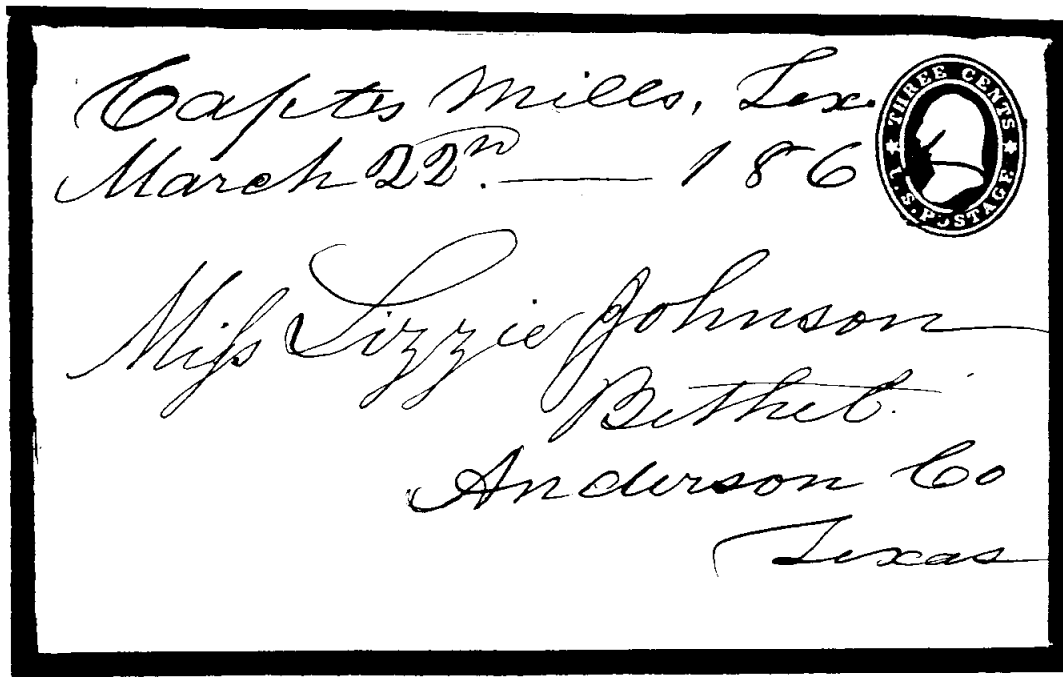 Capts Mills, Tex.
March 22n. — 186
THREE CENTS
U.S. POSTAGE
Miss Lizzie Johnson
Bethel
Anderson Co
Texas